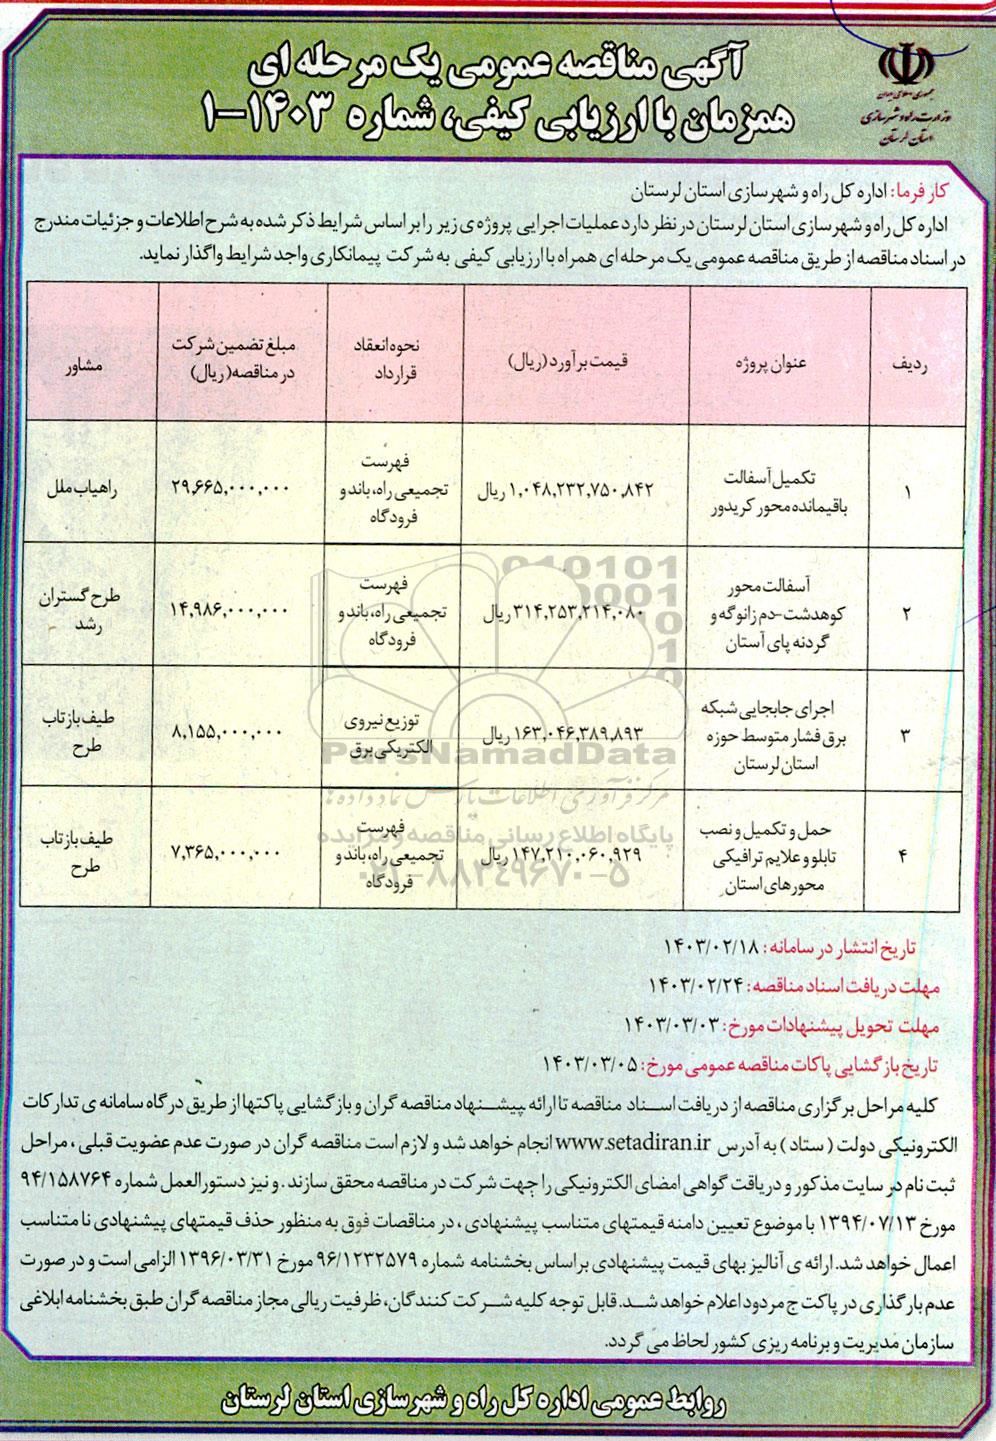 آگهی مناقصه عمومی یک مرحله ای
همزمان با ارزیابی کیفی، شماره ۱۴۰۳-۱
جمهوری اسلامی ایران
وزارت راه و شهرسازی
استان لرستان
کارفرما: اداره کل راه و شهرسازی استان لرستان
اداره کل راه و شهرسازی استان لرستان در نظر دارد عملیات اجرایی پروژه ی زیر را بر اساس شرایط ذکر شده به شرح اطلاعات و جزئیات مندرج
در اسناد مناقصه از طریق مناقصه عمومی یک مرحله ای همراه با ارزیابی کیفی به شرکت پیمانکاری واجد شرایط واگذار نماید.
ردیف | عنوان پروژه | قیمت برآورد (ریال) | نحوه انعقاد قرارداد | مبلغ تضمین شرکت در مناقصه (ریال) | مشاور
۱ | تکمیل آسفالت باقیمانده محور کریدور | ۱,۰۴۸,۲۳۲,۷۵۰,۸۴۲ ریال | فهرست تجمیعی راه، باند و فرودگاه | ۲۹,۶۶۵,۰۰۰,۰۰۰ | راهیاب ملل
۲ | آسفالت محور کوهدشت-دم زانوگه و گردنه پای آستان | ۳۱۴,۲۵۳,۲۱۴,۰۸۰ ریال | فهرست تجمیعی راه، باند و فرودگاه | ۱۴,۹۸۶,۰۰۰,۰۰۰ | طرح گستران رشد
۳ | اجرای جابجایی شبکه برق فشار متوسط حوزه استان لرستان | ۱۶۳,۰۴۶,۳۸۹,۸۹۳ ریال | توزیع نیروی الکتریکی برق | ۸,۱۵۵,۰۰۰,۰۰۰ | طیف بازتاب طرح
۴ | حمل و تکمیل و نصب تابلو و علایم ترافیکی محورهای استان | ۱۴۷,۲۱۰,۰۶۰,۹۲۹ ریال | فهرست تجمیعی راه، باند و فرودگاه | ۷,۳۶۵,۰۰۰,۰۰۰ | طیف بازتاب طرح
ParsNamadData
مرکز فرآوری اطلاعات پارس نماد داده ها
پایگاه اطلاع رسانی مناقصه و مزایده
۰۲۱-۸۸۳۴۹۶۷۰-۵
تاریخ انتشار در سامانه: ۱۴۰۳/۰۲/۱۸
مهلت دریافت اسناد مناقصه: ۱۴۰۳/۰۲/۲۴
مهلت تحویل پیشنهادات مورخ: ۱۴۰۳/۰۳/۰۳
تاریخ بازگشایی پاکات مناقصه عمومی مورخ: ۱۴۰۳/۰۳/۰۵
کلیه مراحل برگزاری مناقصه از دریافت اسناد مناقصه تا ارائه پیشنهاد مناقصه گران و بازگشایی پاکتها از طریق درگاه سامانه ی تدارکات
الکترونیکی دولت (ستاد) به آدرس www.setadiran.ir انجام خواهد شد و لازم است مناقصه گران در صورت عدم عضویت قبلی، مراحل
ثبت نام در سایت مذکور و دریافت گواهی امضای الکترونیکی را جهت شرکت در مناقصه محقق سازند. و نیز دستورالعمل شماره ۹۴/۱۵۸۷۶۴
مورخ ۱۳۹۴/۰۷/۱۳ با موضوع تعیین دامنه قیمتهای متناسب پیشنهادی، در مناقصات فوق به منظور حذف قیمتهای پیشنهادی نامتناسب
اعمال خواهد شد. ارائه ی آنالیز بهای قیمت پیشنهادی بر اساس بخشنامه شماره ۹۶/۱۲۳۲۵۷۹ مورخ ۱۳۹۶/۰۳/۳۱ الزامی است و در صورت
عدم بارگذاری در پاکت ج مردود اعلام خواهد شد. قابل توجه کلیه شرکت کنندگان، ظرفیت ریالی مجاز مناقصه گران طبق بخشنامه ابلاغی
سازمان مدیریت و برنامه ریزی کشور لحاظ می گردد.
روابط عمومی اداره کل راه و شهرسازی استان لرستان